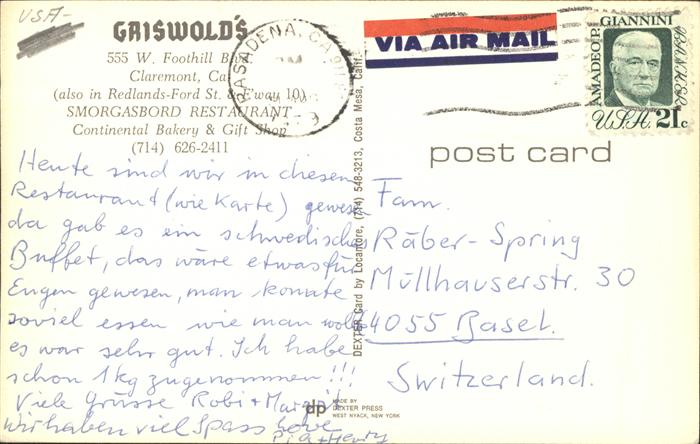 USA-
GRISWOLD'S
555 W. Foothill
Claremont, Ca
(also in Redlands-Ford St. & F'way 10)
SMORGASBORD RESTAURANT
Continental Bakery & Gift Shop
(714) 626-2411
PASADENA, CA
VIA AIR MAIL
AMADEO P. GIANNINI
BANKER
USA 21c
post card
Heute sind wir in diesem
Restaurant (wie Karte) gewesen
da gab es ein schwedisches
Buffet, das wäre etwas für
Eugen gewesen, man konnte
soviel essen wie man wollte
es war sehr gut. Ich habe
schon 1 kg zugenommen!!!
Viele Grüsse Robi + Margrit
Wir haben viel Spass
+ Henry
DEXTER Card by Locantore, (714) 548-3213, Costa Mesa, Calif.
Fam.
Räber-Spring
Müllhauserstr. 30
4055 Basel.
Switzerland.
dp
MADE BY
DEXTER PRESS
WEST NYACK, NEW YORK